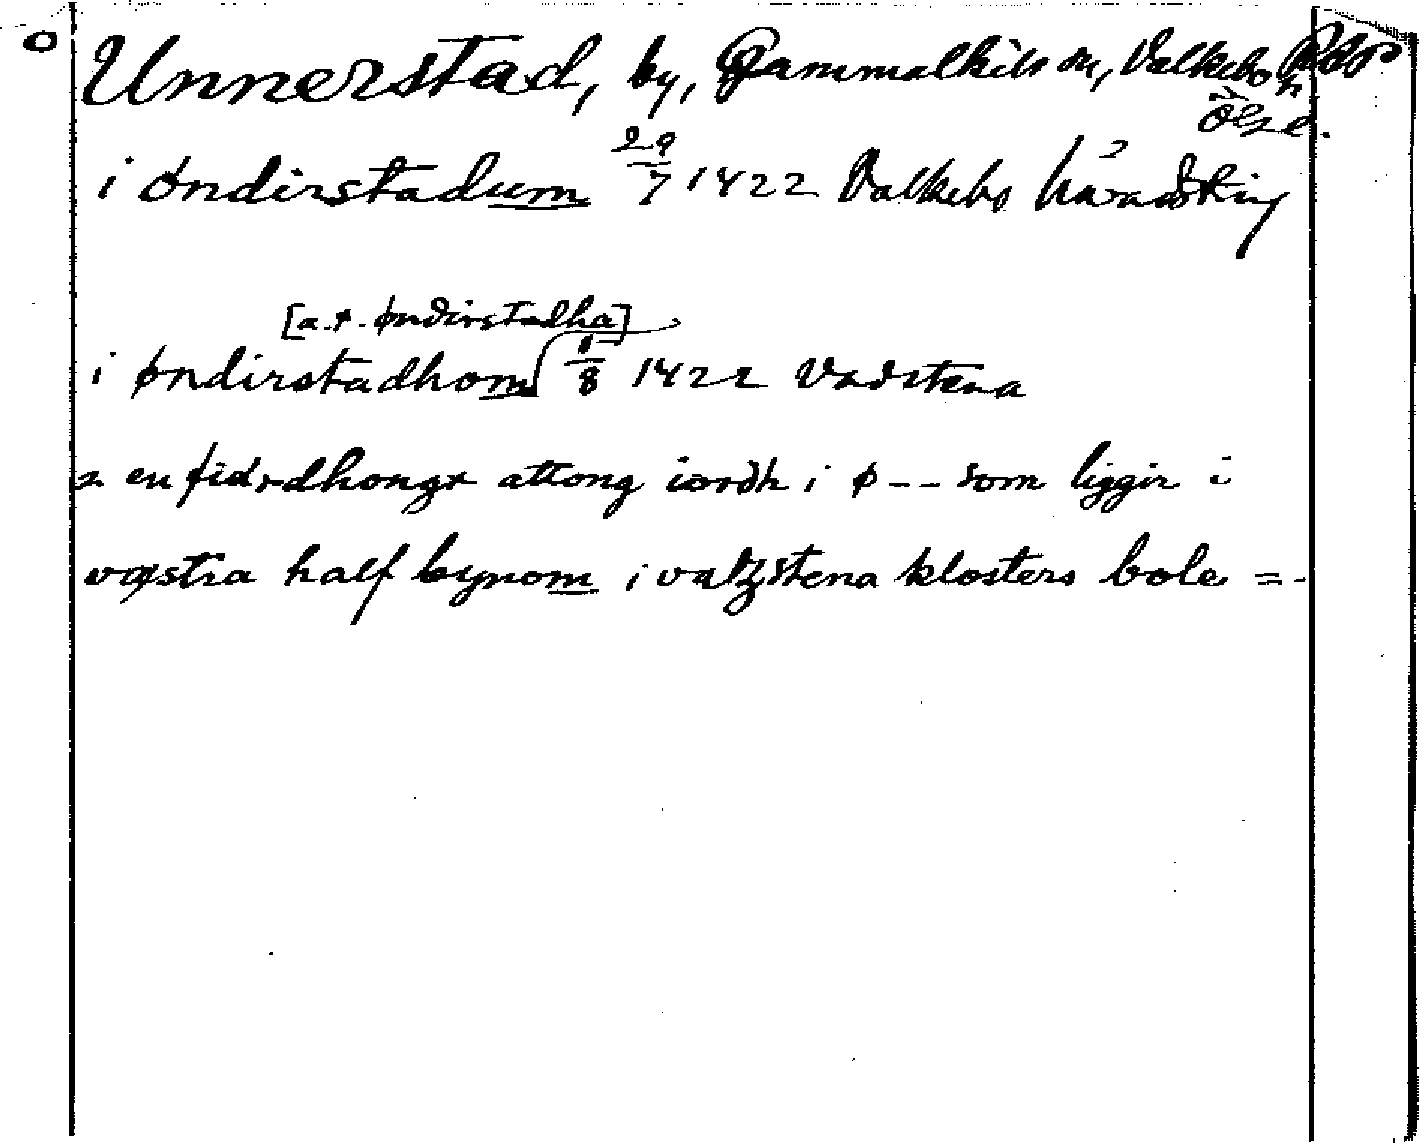 Unnerstad, by, Gammalkils sn, Valkebo h
Ögl.
i ondirstadum 29/7 1422 Valkebo häradsting
[a.t. øndirstadha]
i øndirstadhom 1/8 1422 Vadstena
en fiærdhongx attong iordh i ø-- som liggir i
wæstra half bynom i vatzstena klosters bole =-